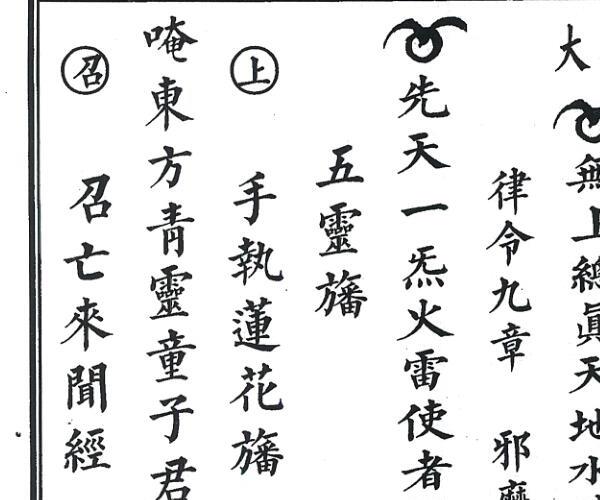 大
無上總眞天地水
律令九章 邪魔
先天一炁火雷使者
五靈旛
上 手執蓮花旛
唵東方青靈童子君
召 召亡來聞經